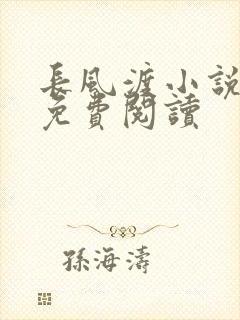 長風渡小說
免費閱讀
孫海濤